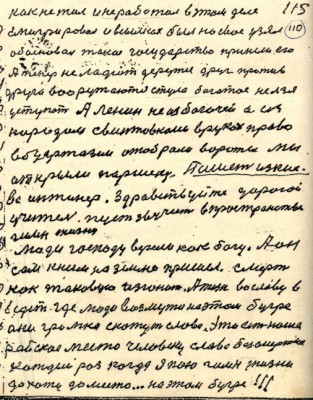 115
110
как не тал и неработал в этом деле
эмигрировал и всылках был но свое узял
обосновал такое государство приняли его
А теперь не ладют дерутся друг против
друга вооружаются стула богатое нелзя
уступот А Ленин не избогачей а из
народом свинтовками вруках право
вбуржуазии отобрали ворота мы
открыли паршеку. Пишет изкие-
ве интинер. Здравствуйте дорогой
учител. пуст звучит впространстве
гимн жизни
Люди господу верили как богу. А он
сам книги на землю пришол. смерт
как таковую изгонот. Атеп вославу в
едет где людо возмутц на этом бугре
они громка скажут слово. Это ест наша
райское место человеку слава безошибочна
каждей раз когда я пою гимн жизни
до хоте до место... на этом бугре!!!